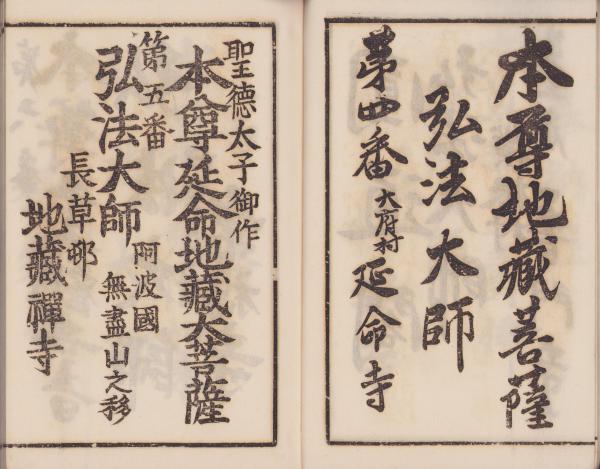 本尊地藏菩薩
弘法大師
第四番 大府村 延命寺
聖德太子御作
本尊延命地藏大菩薩
第五番
弘法大師 阿波國
無盡山之移
長草邨
地藏禪寺